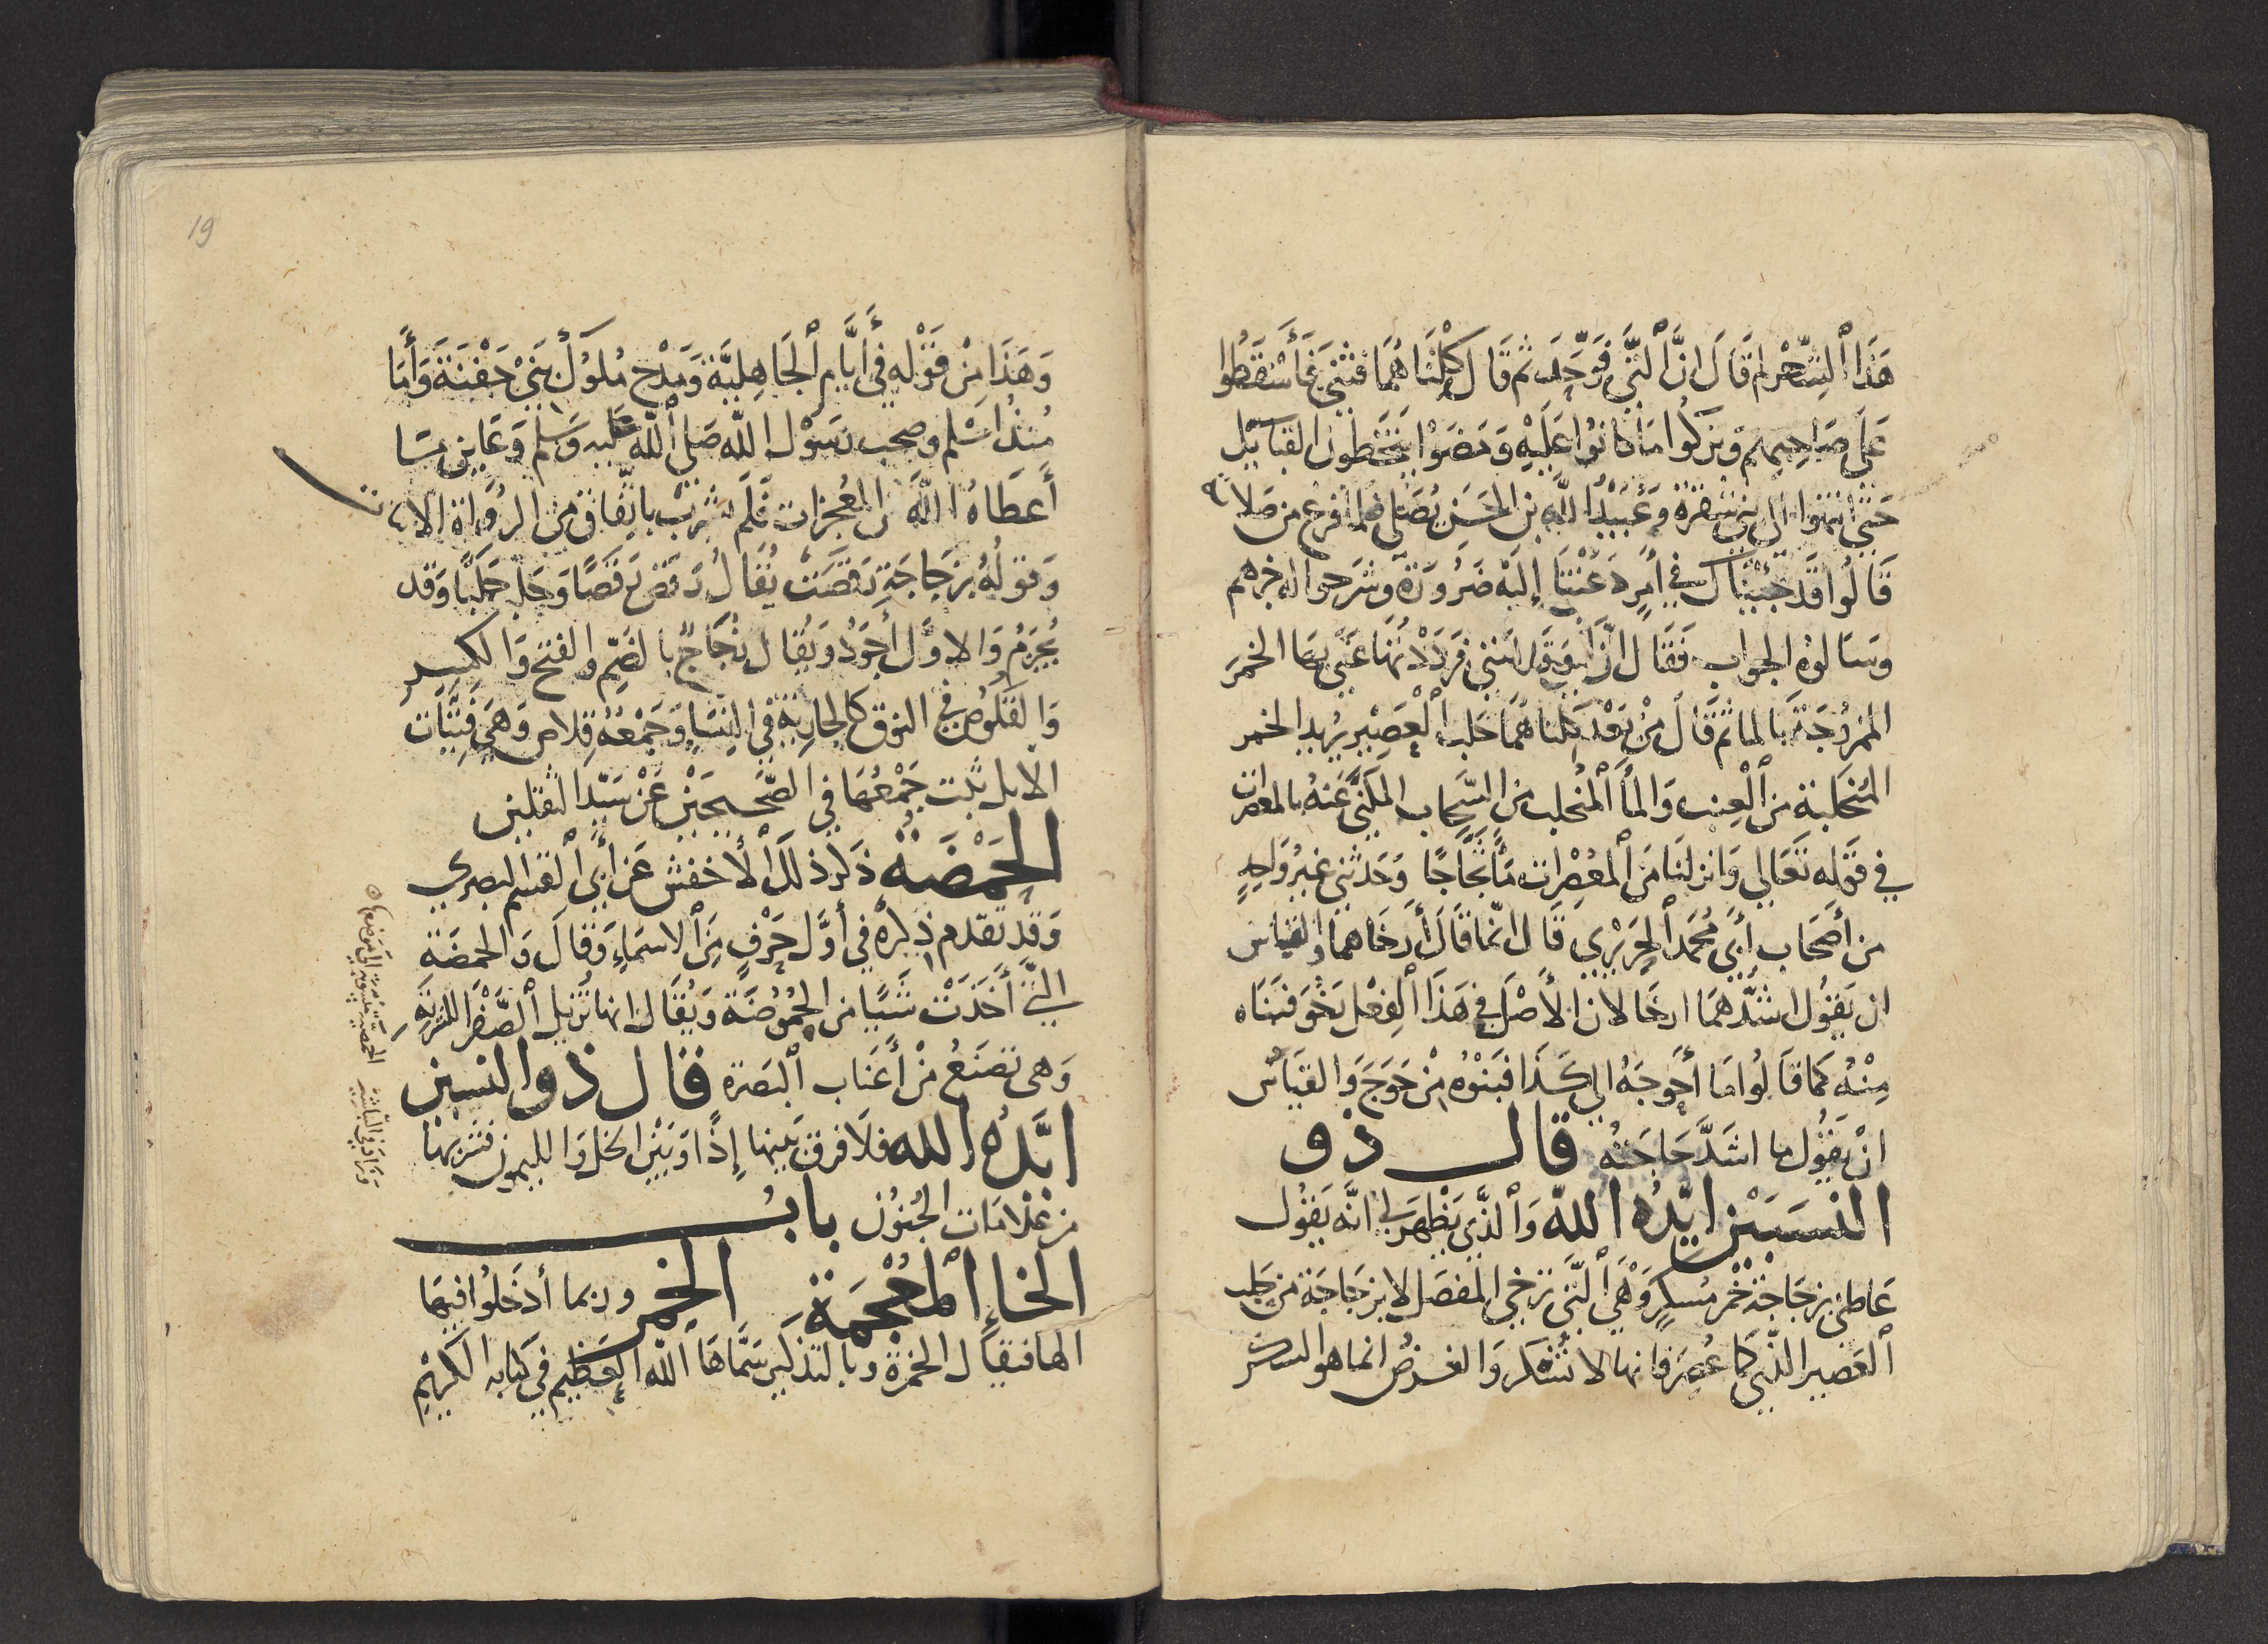 هَذَا ٱلشِّعْر لِمَ قَالَ انَّ ٱلَّتِي فَوَحَّدَ ثم قَالَ كِلْتَاهُمَا فثنى فَأَشفَقُوا
عَلَى صَاحِبهم وَتركوا مَا كانوُا عَلَيْهِ وَمَضَوْا يتخَطون القبَائل
حَتَّى انتهَوا الى بني شقرة وَعُبَيْدُ اللَّهِ بن الحَسَن يُصَلّى فلما فرغ من صَلاته
قَالُوا قَدْ جئْنَاكَ في أَمرٍ دَعَتْنَا إِلَيْه ضَرُورَة وَشَرَحوا له خبرهم
وَسَالوْه الجوابَ فَقَالَ انَّ التى نَاوَلتَنى فَرَدَدْتُهَا عَنَى بهَا الخمرَ
الممزُوجَةَ بالمَا ثم قَالَ مِنْ بَعْد كِلتاهُمَا حَلبُ ٱلْعَصِيْر يُريد الخمر
المُتحَلبة من ٱلْعِنب وَالمَأَ ٱلْمُتحلب من السَّحَاب المكَنَّى عَنهُ بالمعصرات
في قَوْله تَعَالى وَانزلنَا مَن ٱلْمُعْصِرَات مَأً ثَجَّاجًا وَحَدثنى غيرُ وَاحِدٍ
من أَصْحَاب أَبى مُحَمد ٱلحَرِيْرِي قَالَ انّما قَالَ أَرخَاهما وَالقيَاس
ان يَقُول اشَدُّهمَا ارخَا لان الأَصْلَ في هَذَا ٱلفِعْل يَنْحُو فبنَاه
مِنْهُ كَمَا قَالُوا مَا أَحوجَهُ الى كَذَا فبَنَوْهُ مِنْ حَوَجَ وَالقيَاسُ
انْ يَقُول ما اشَدَّ حَاجَتهُ قال ذو
النسَبَيْن ايّدُه اللّه وَٱلذَّي يَظْهَر لى انَّه يَقُول
عَاطنى بزجَاجَة خمْر مُسكِرٍ وَهْيَ ٱلتَّي ترْخي المفصَل لا بزجَاجَة من حَلب
ٱلعَصِير التي كَما عُصِرَ فانها لا تُسْكر وَالغَرضُ انما هو السكر
19
وَهَذَا مِنْ قَوْله في أَيَّامِ ٱلجَاهِليَّة وَمَدْح مُلوُكَ بَنِيْ جَفْنَةَ وَأَمَا
مُنذُ اسْلم وصحب رَسُوْل اللّه صَلى ٱللّه عَلَيه وَسَلم وَعَاين مَا
أَعطَاهُ اللَّه من المعُجزات فَلَم يَشربْ باتِّفَاق من الرُّوَاة الاثبات
وَقولُهُ بزجَاجَةٍ رَقصَتْ يُقَالُ رَقصَ رَقَصًا وَحَلَبَ حَلَبًا وَقد
يُجْزَمُ وَالاوّل أَجوَدُ وَيُقال زُجَاجٌ بالضَمِّ وَالفتح وَالكسر
وَالقَلُوصُ في النوق كالجَاريَة في النِسَاءِ وَجَمْعهُ قِلاص وَهي فَتيَّات
الابل ثبت جَمْعُهَا في الصَّحِيحَيْن عَنْ سَيّد الثقلين
الحَمْضَةُ ذكرَ ذلك ٱلأخفش عَن أَبى ٱلقسم البصري
وَقَد تقدم ذكرُه في أَوَّل حَرْفٍ مِنَ ٱلاسمَاءِ وَقال وَالحمضَة
التَّي أَخَذَتْ شَيًا من الحُمُوُضَة وَيُقَالُ انها تُزيل ٱلصَّفْرَا للمرَّةِ
وَهى تصنَعُ مِنْ أَعْنَاب ٱلبَصْرة فقال ذو النسبين
ايَّدُه الله فلَا فرق بَينها إِذًا وَبَيْن الخل وَالليمون فشربهَا
من عَلَامَات الجُنوُن بابُ
الخاءِ ٱلمعُجْمَة الخمر وربما أدخلُوا فيهَا
الها فيقال الخمرة وبالتذكير سَمَّاهَا ٱللّه العَظيم في كتابه الكريْم